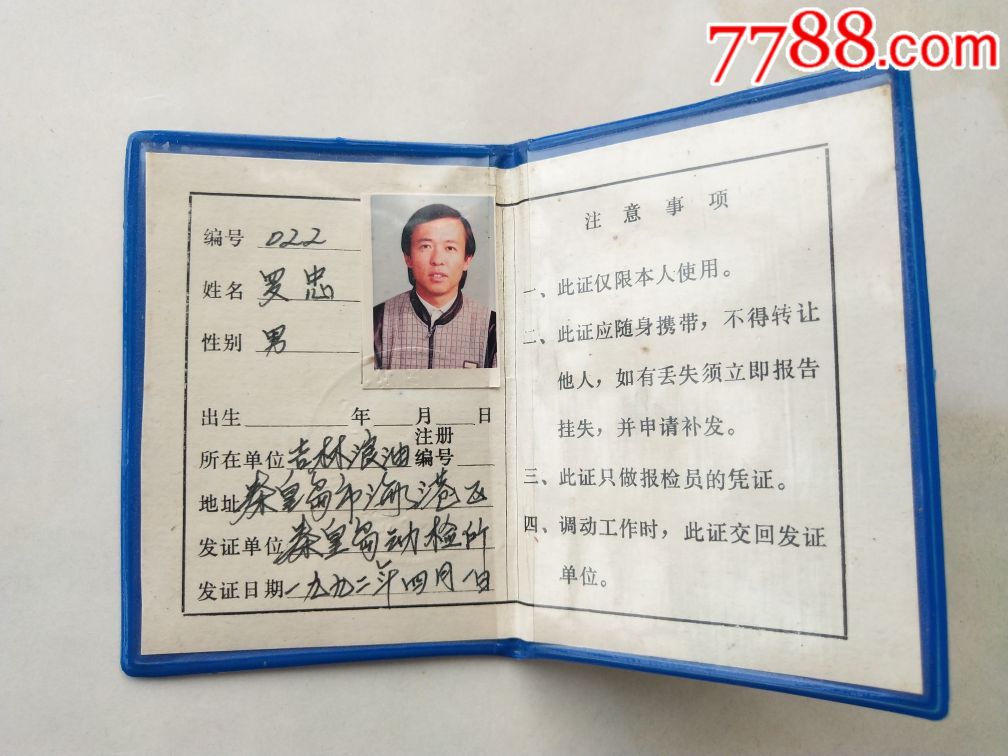 7788.com
编号 022
姓名 罗忠
性别 男
出生 年 月 日
所在单位 吉林浪油 注册编号
地址 秦皇岛市海港区
发证单位 秦皇岛动检所
发证日期 一九九二年四月一日
注意事项
一、此证仅限本人使用。
二、此证应随身携带，不得转让
他人，如有丢失须立即报告
挂失，并申请补发。
三、此证只做报检员的凭证。
四、调动工作时，此证交回发证
单位。